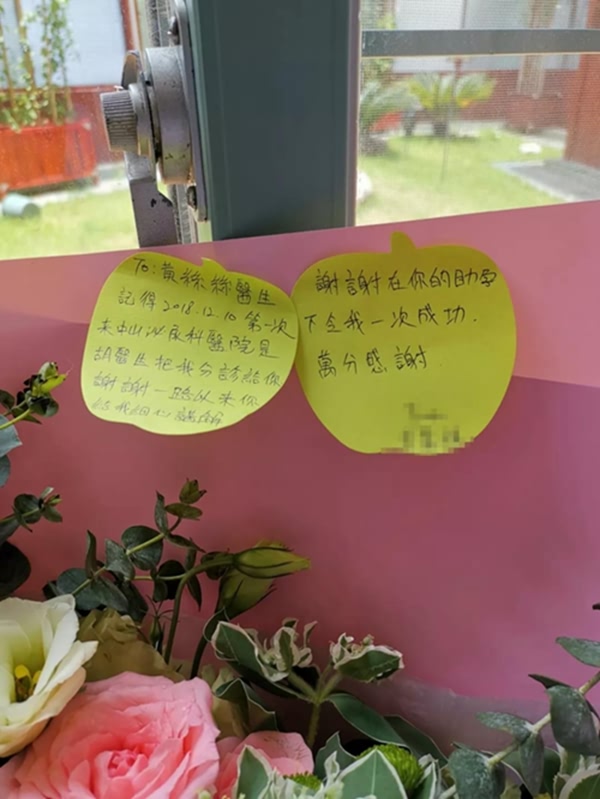 To: 黃絲絲醫生
記得2018.12.10 第一次
來中山泌尿科醫院是
胡醫生把我分診給你
謝謝一路以來你
給我細心講解
謝謝在你的助孕
下全我一次成功.
萬分感謝